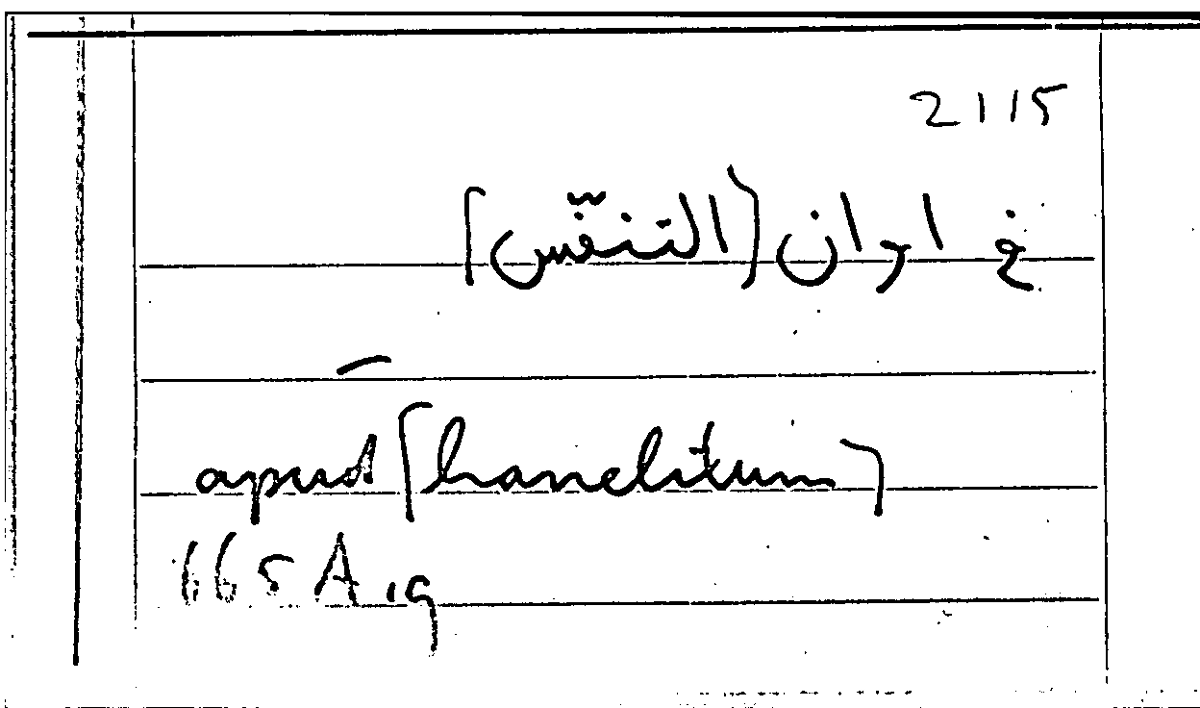 2115
في اوان [التنفّس]
apud [hanelitum]
665 A 19